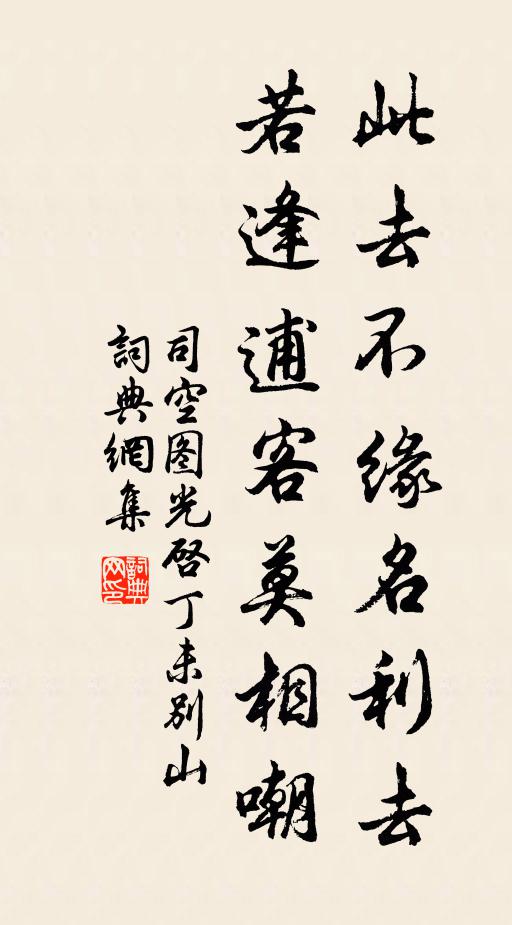 此去不緣名利去
若逢逋客莫相嘲
司空图光啓丁未別山
詞典網集
詞典网印